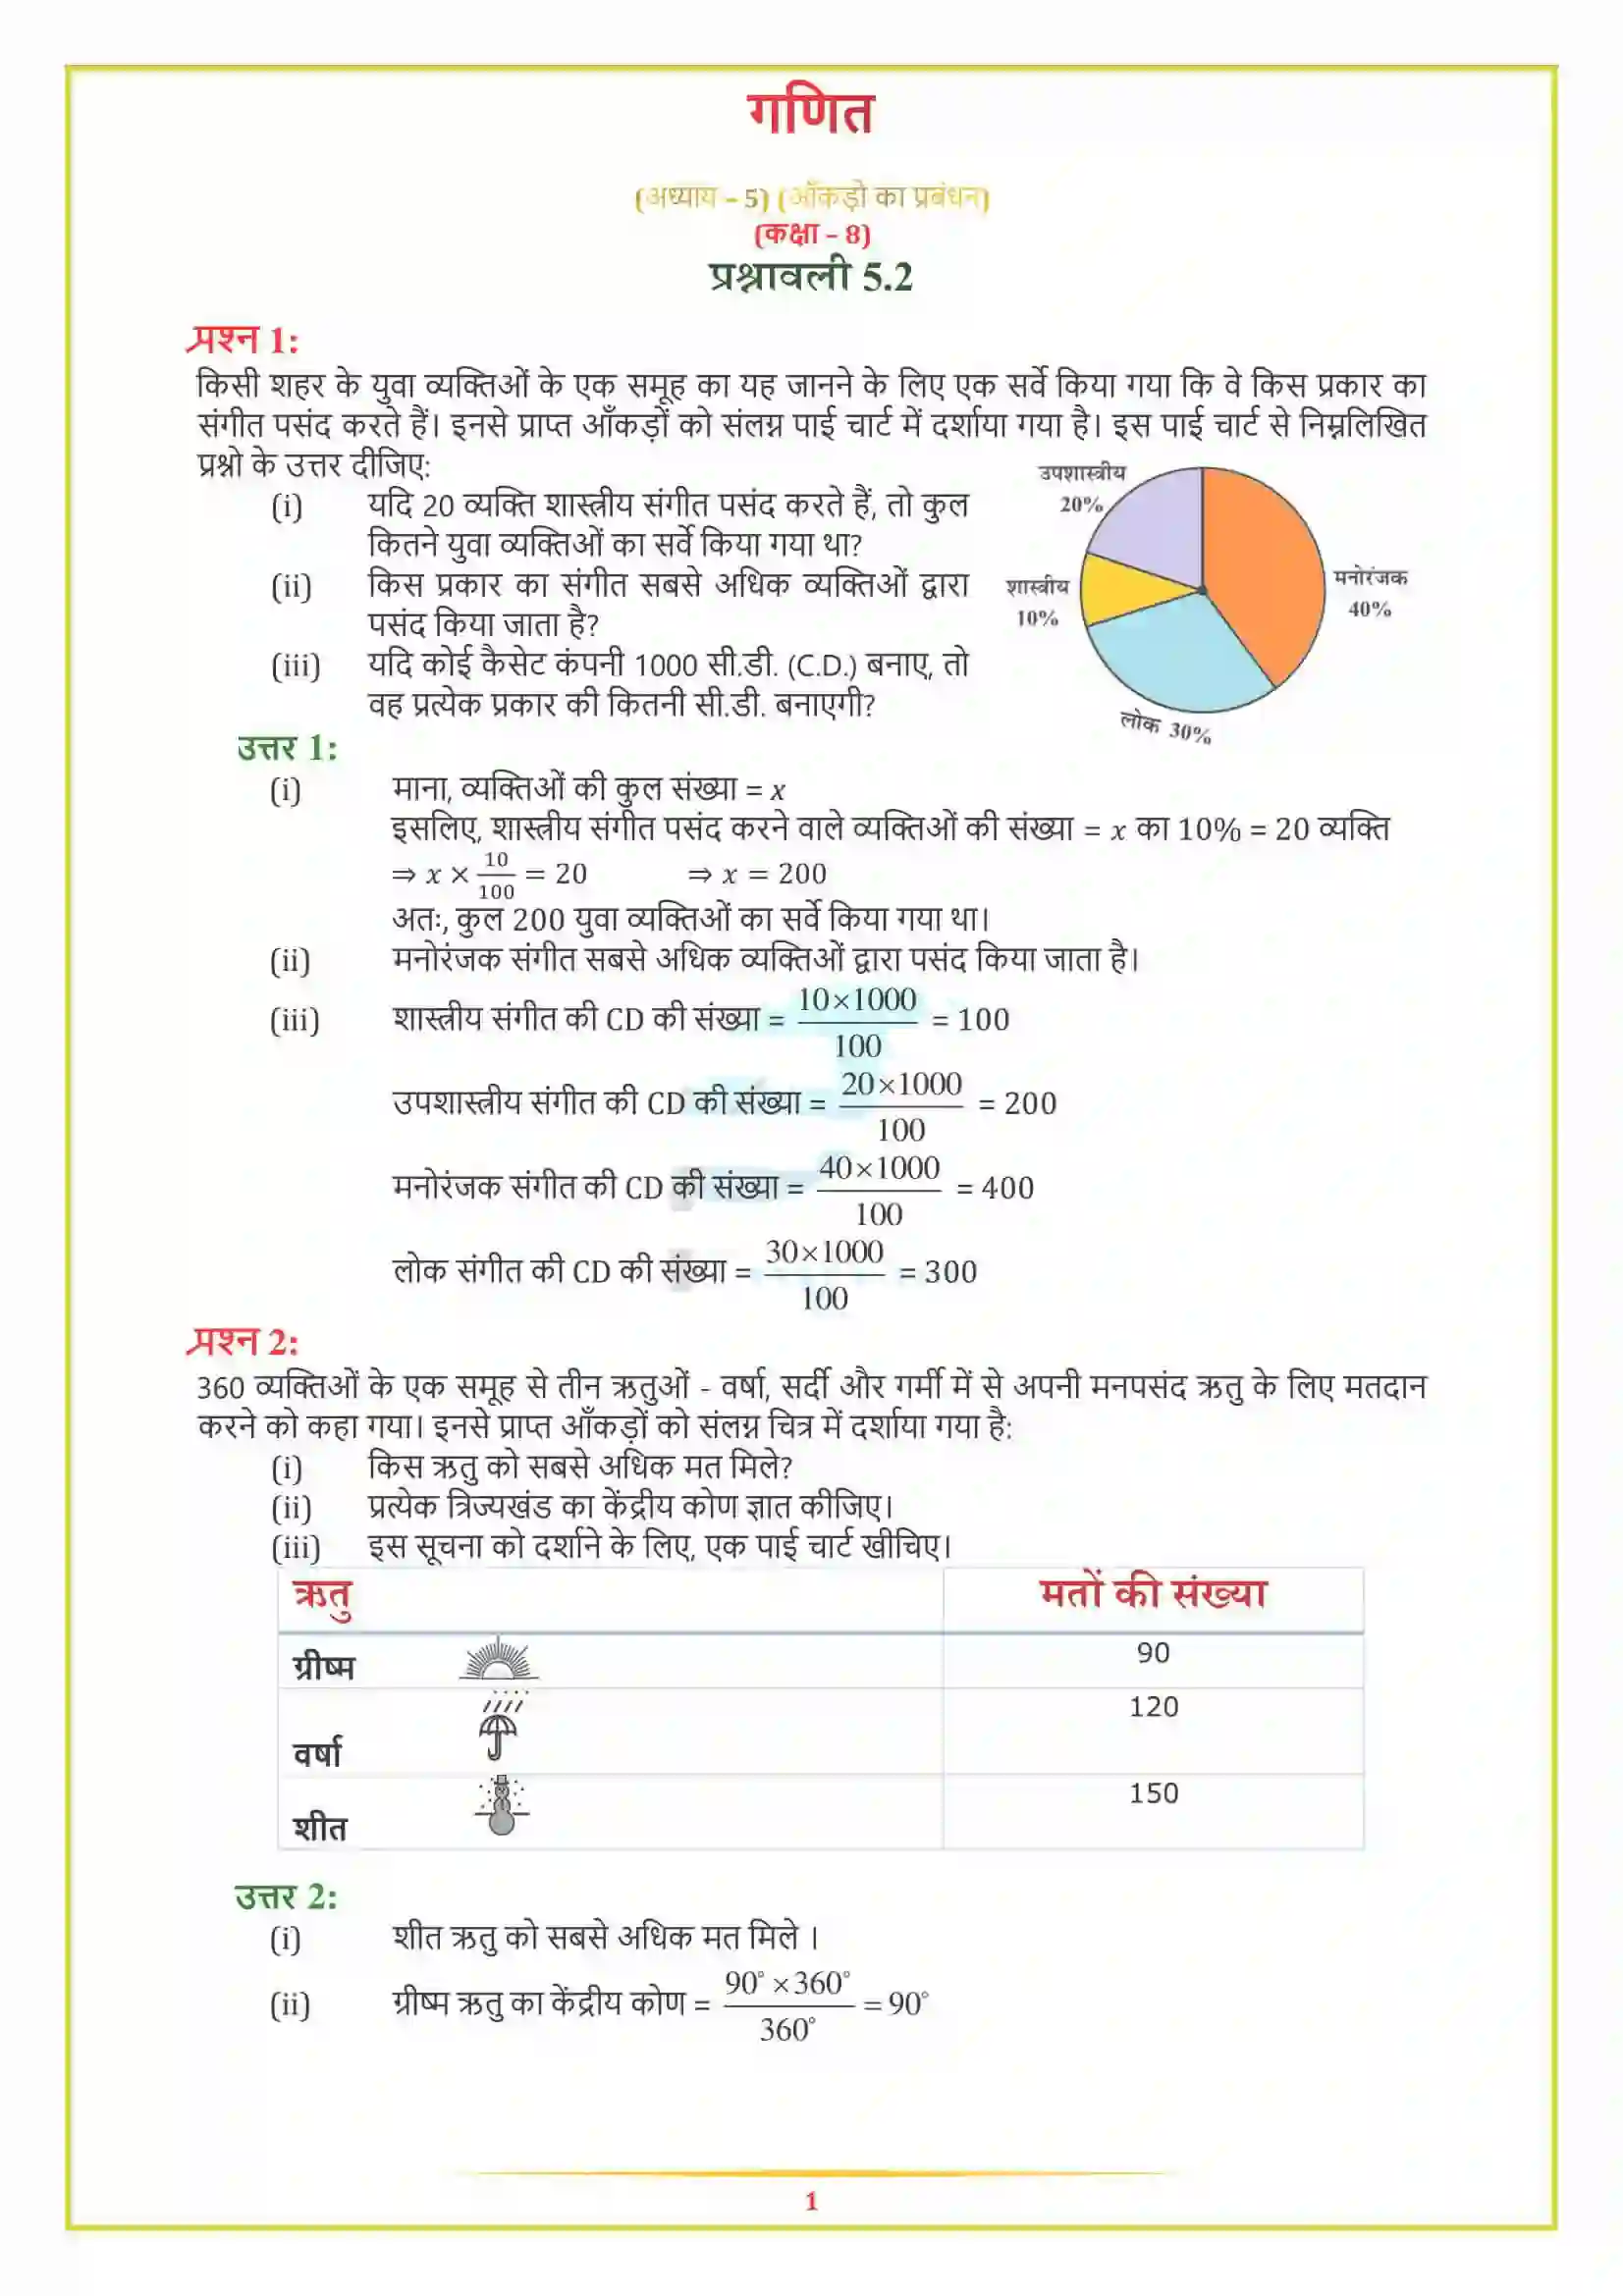 गणित
(अध्याय – 5) (आँकड़ो का प्रबंधन)
(कक्षा – 8)
प्रश्नावली 5.2
प्रश्न 1:
किसी शहर के युवा व्यक्तिओं के एक समूह का यह जानने के लिए एक सर्वे किया गया कि वे किस प्रकार का
संगीत पसंद करते हैं। इनसे प्राप्त आँकड़ों को संलग्न पाई चार्ट में दर्शाया गया है। इस पाई चार्ट से निम्नलिखित
प्रश्नो के उत्तर दीजिए:
(i) यदि 20 व्यक्ति शास्त्रीय संगीत पसंद करते हैं, तो कुल
कितने युवा व्यक्तिओं का सर्वे किया गया था?
(ii) किस प्रकार का संगीत सबसे अधिक व्यक्तिओं द्वारा
पसंद किया जाता है?
(iii) यदि कोई कैसेट कंपनी 1000 सी.डी. (C.D.) बनाए, तो
वह प्रत्येक प्रकार की कितनी सी.डी. बनाएगी?
उपशास्त्रीय
20%
शास्त्रीय
10%
मनोरंजक
40%
लोक 30%
उत्तर 1:
(i) माना, व्यक्तिओं की कुल संख्या = x
इसलिए, शास्त्रीय संगीत पसंद करने वाले व्यक्तिओं की संख्या = x का 10% = 20 व्यक्ति
⇒ x × 10/100 = 20 ⇒ x = 200
अतः, कुल 200 युवा व्यक्तिओं का सर्वे किया गया था।
(ii) मनोरंजक संगीत सबसे अधिक व्यक्तिओं द्वारा पसंद किया जाता है।
(iii) शास्त्रीय संगीत की CD की संख्या = 10×1000/100 = 100
उपशास्त्रीय संगीत की CD की संख्या = 20×1000/100 = 200
मनोरंजक संगीत की CD की संख्या = 40×1000/100 = 400
लोक संगीत की CD की संख्या = 30×1000/100 = 300
प्रश्न 2:
360 व्यक्तिओं के एक समूह से तीन ऋतुओं - वर्षा, सर्दी और गर्मी में से अपनी मनपसंद ऋतु के लिए मतदान
करने को कहा गया। इनसे प्राप्त आँकड़ों को संलग्न चित्र में दर्शाया गया है:
(i) किस ऋतु को सबसे अधिक मत मिले?
(ii) प्रत्येक त्रिज्यखंड का केंद्रीय कोण ज्ञात कीजिए।
(iii) इस सूचना को दर्शाने के लिए, एक पाई चार्ट खीचिए।
ऋतु मतों की संख्या
ग्रीष्म 90
वर्षा 120
शीत 150
उत्तर 2:
(i) शीत ऋतु को सबसे अधिक मत मिले ।
(ii) ग्रीष्म ऋतु का केंद्रीय कोण = 90°×360°/360° = 90°
1